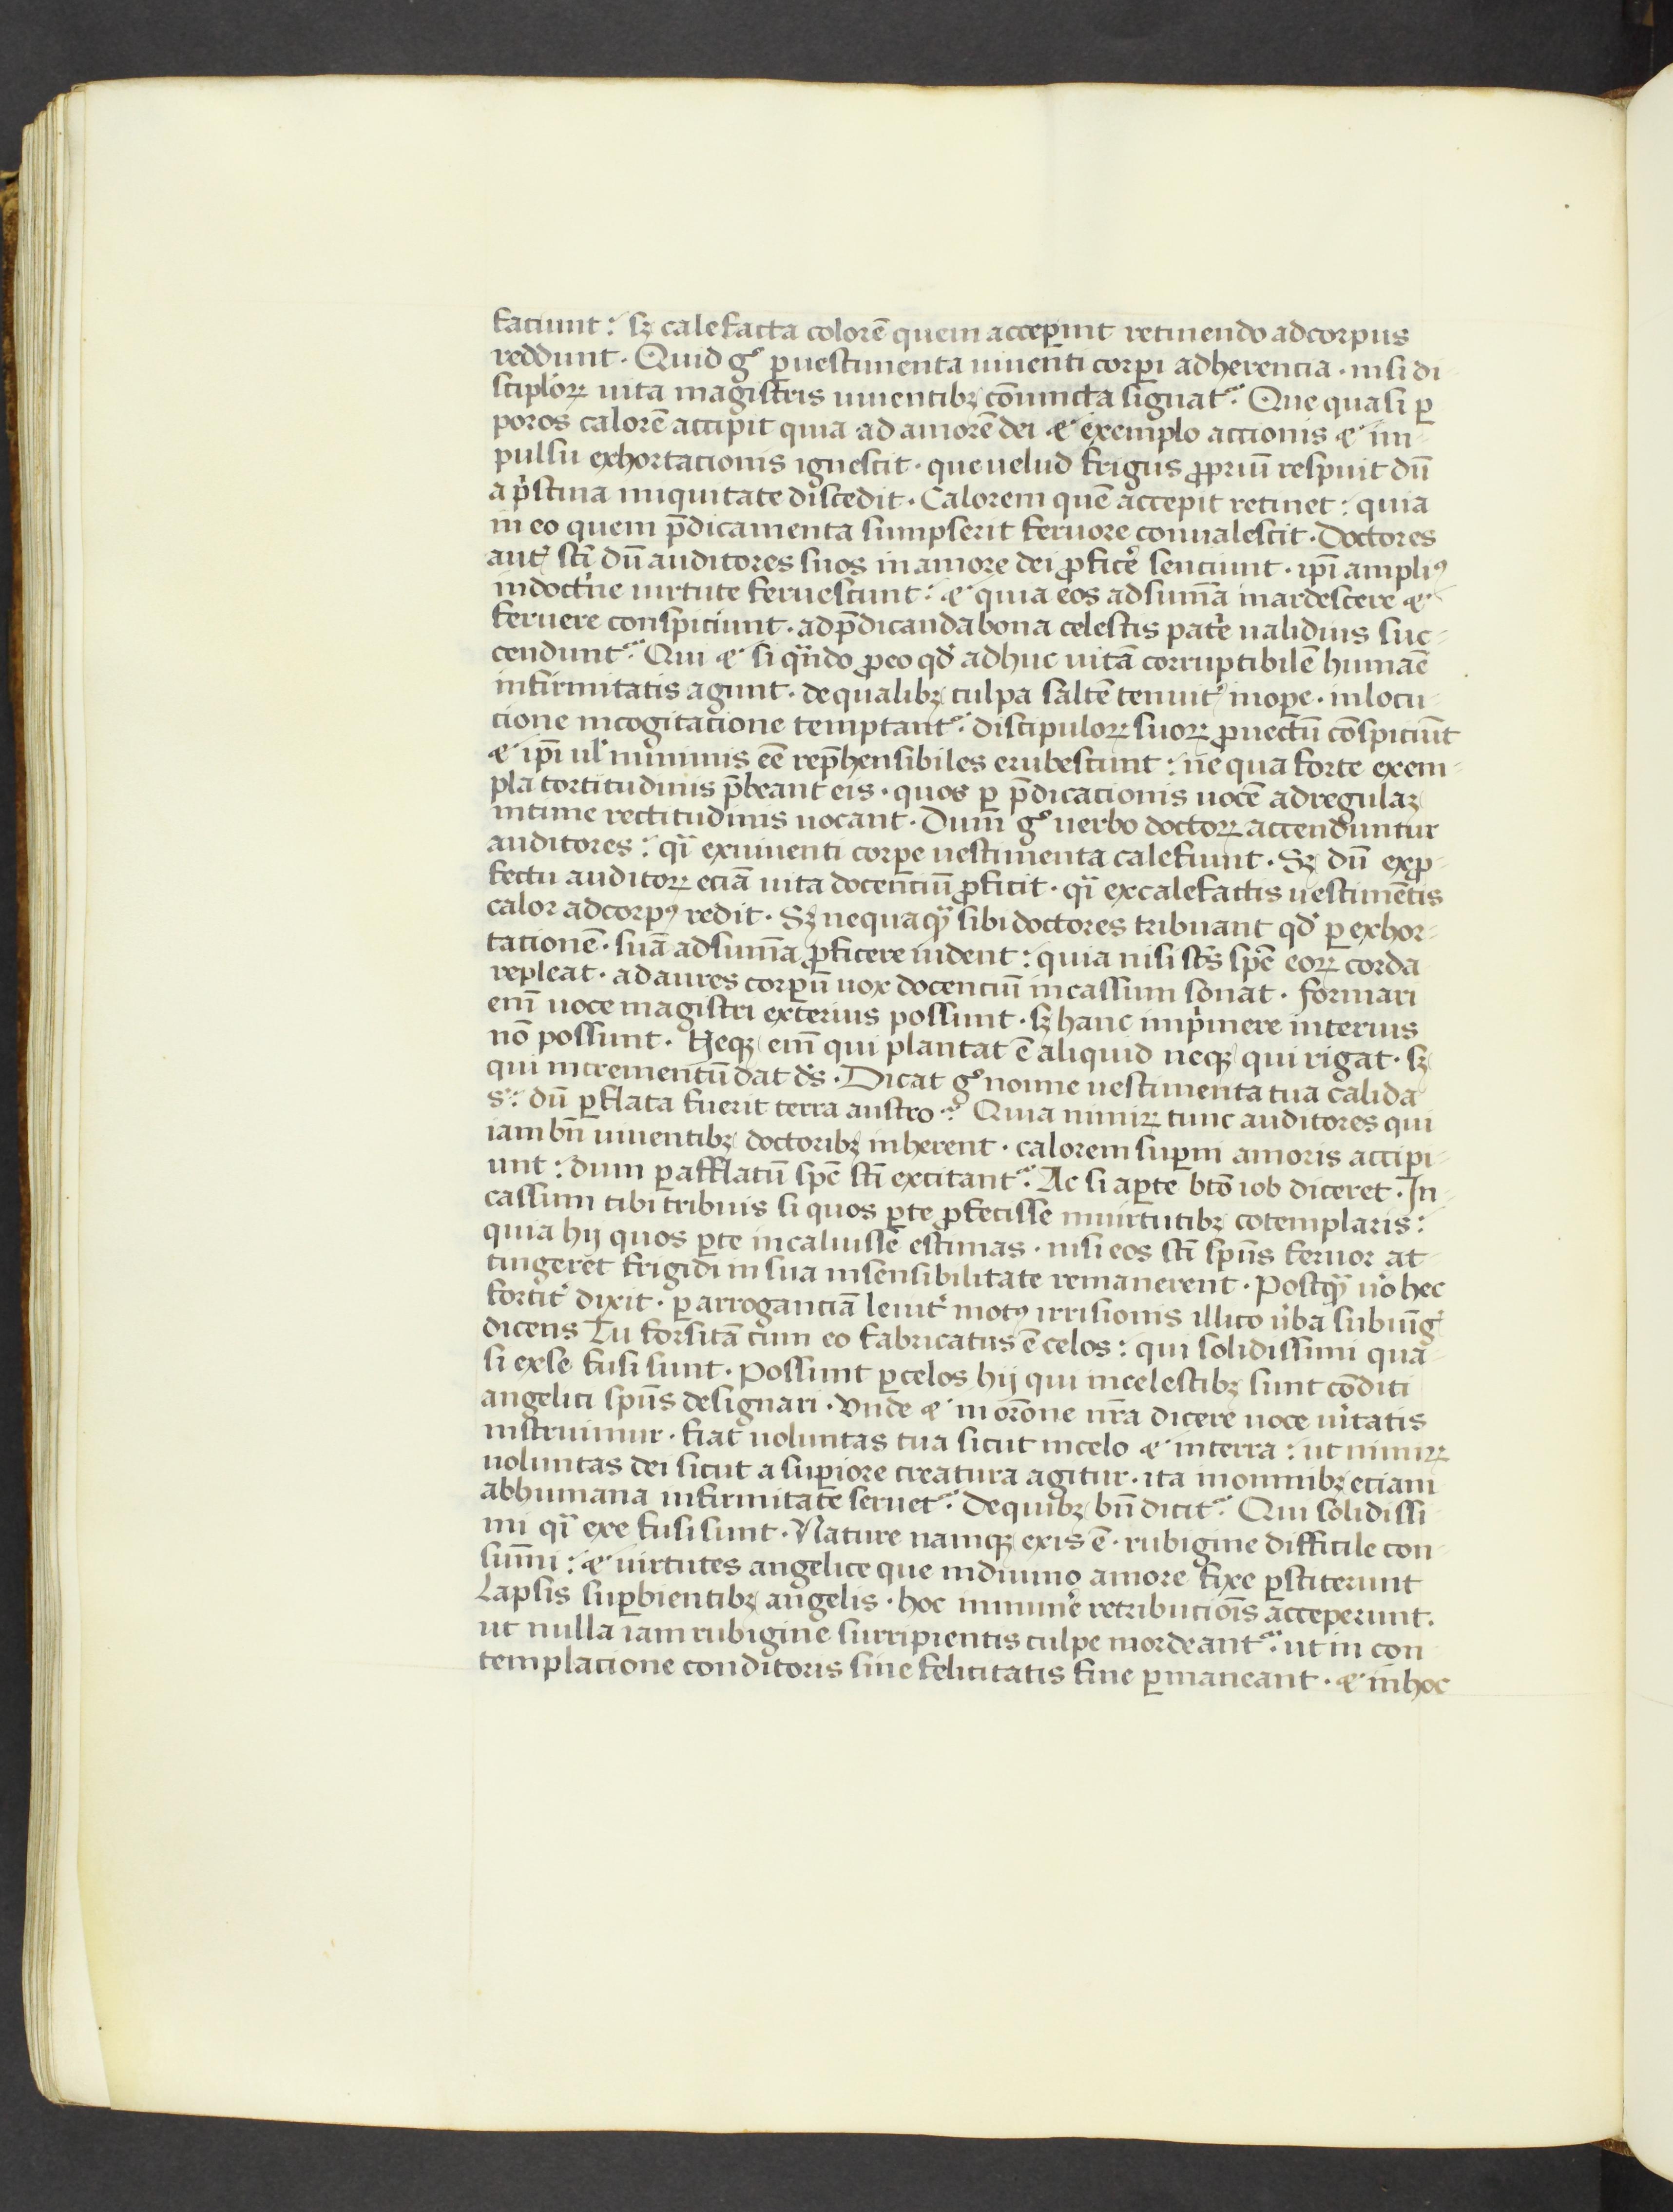 faciunt: sꝫ calefacta colorē quem acceꝑint retinendo adcorpus
reddunt. Quid gͦ ꝑ uestimenta uiuenti corꝑi adherencia. nisi di-
sciploꝝ uita magistris uiuentibꝫ cōiuncta signat᷑. Que quasi ꝑ
poros calorē accipit quia ad amorē dei ⁊ exemplo accionis ⁊ im-
pulsu exhortacionis ignescit. que uelud frigus ꝓpriū respuit dū
a pͥstina iniquitate discedit. Calorem quē accepit retinet: quia
in eo quem p̄dicamenta sumpserit feruore conualescit. Doctores
aut̄ sc̄i dū auditores suos in amore dei ꝓficẻ senciunt. ip̄i ampliꝰ
indoctͥne uirtute feruescunt: ⁊ quia eos adsum̄a inardescere ⁊
feruere conspiciunt. ad p̄dicanda bona celestis pat̓e ualidius suc-
cendunt᷑. Qui ⁊ si qn̄do ꝓeo qd̓ adhuc uitā corruptibilē humaē
infirmitatis agunt. de qualibꝫ culpa saltē tenuit̓ inoꝑe. inlocu-
cione incogitacione temptant᷑. discipuloꝝ suoꝝ ꝓuectū cōspiciūt
⁊ ip̄i ul̓ minimis eē rep̄hensibiles erubescunt: ne qua forte exem-
pla tortitudinis p̄beant eis. quos ꝑ p̄dicacionis uocē adregulaꝫ
intime rectitudinis uocant. Dum gͦ uerbo doctoꝝ accenduntur
auditores: qͣi exuiuenti corpe uestimenta calefiunt. Sꝫ dū exꝓ-
fectu auditoꝝ eciā uita docenciū ꝓficit. qͣi excalefactis uestimētis
calor adcorpꝰ redit. Sꝫ nequaqͣꝫ sibi doctores tribuant qd̓ ꝑ exhor-
tacionē. suā adsum̄a ꝓficere uident: quia nisi sc̄s spc̄ eoꝝ corda
repleat. ad aures corꝑū uox docenciū incassum sonat. formari
em̄ uoce magistri exterius possunt. sꝫ hanc impͥmere interius
nō possunt. Neqꝫ em̄ qui plantat ē aliquid neqꝫ qui rigat. sꝫ
qui incrementū dat ds̄. Dicat gͦ nonne uestimenta tua calida
s̄: dū ꝑflata fuerit terra austro. Quia nimiꝝ tunc auditores qui
iam bn̄ uiuentibꝫ doctoribꝫ inherent. calorem suꝑni amoris accipi-
unt: dum ꝑ afflatū spc̄ sc̄i excitant᷑. Ac si aꝑte bt̄o iob diceret. In-
cassum tibi tribuis si quos ꝑte ꝓfecisse inuirtutibꝫ cotemplaris:
quia hij quos ꝑte incaluisse estimas. nisi eos sc̄i spūs feruor at-
tingeret frigidi in sua insensibilitate remanerent. Postqͣꝫ uͦo hec
fortit̓ dixit. ꝑ arroganciā leuit̓ motꝰ irrisionis illico u̓ba subiūg̓
dicens Tu forsitā cum eo fabricatus ē celos: qui solidissimi qua-
si exse fusi sunt. Possunt ꝑ celos hij qui incelestibꝫ sunt cōditi
angelici spūs designari. Vnde ⁊ in or̄one nr̄a dicere uoce u̓itatis
instruimur. fiat uoluntas tua sicut incelo ⁊ interra: ut nimiꝝ
uoluntas dei sicut a suꝑiore creatura agitur. ita inomnibꝫ eciam
abhumana infirmitate seruet᷑. Dequibꝫ bn̄ dicit᷑. Qui solidissi-
mi qͣi exe fusi sunt. Nature namqꝫ eris ē. rubigine difficile con-
sum̄i: ⁊ uirtutes angelice que indiuino amore fixe ꝑstiterunt
Lapsis suꝑbientibꝫ angelis. hoc inmun̓e retribucioīs acceperunt.
ut nulla iam rubigine surripientis culpe mordeant᷑. ut in con
templacione conditoris sine felicitatis fine ꝑmaneant. ⁊ inhoc